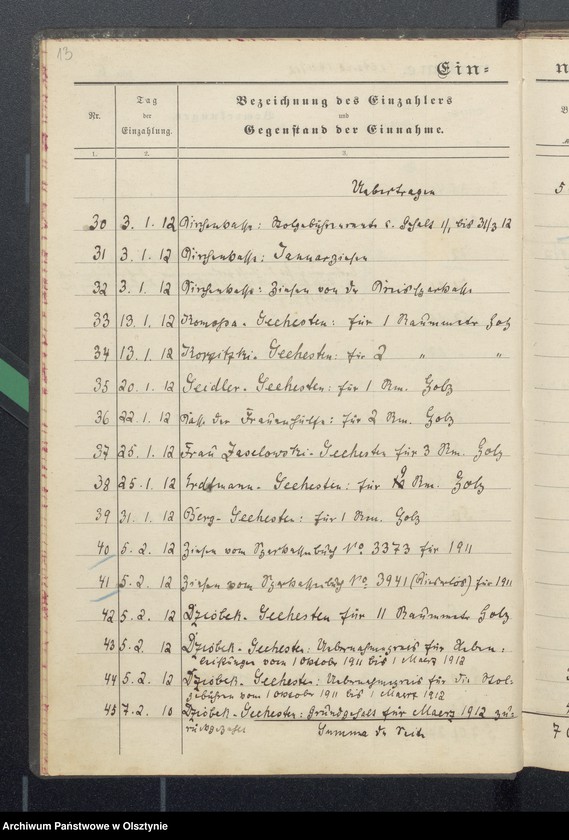 13
Ein-
Nr.
Tag
der
Einzahlung.
Bezeichnung des Einzahlers
und
Gegenstand der Einnahme.
1. 2. 3.
Uebertragen
5
30 3. 1. 12 Kirchenkasse: Stolgebührenrente u. Gehalt 1/1 bis 31/3 12
31 3. 1. 12 Kirchenkasse: Januarzinsen
32 3. 1. 12 Kirchenkasse: Zinsen von der Kreissparkasse
33 13. 1. 12 Komossa-Seehesten: für 1 Raummeter Holz
34 13. 1. 12 Seehesten: für 2 " "
35 20. 1. 12 Seidler-Seehesten: für 1 Rm. Holz
36 22. 1. 12 Kasse der Frauenhülfe: für 2 Rm. Holz
37 25. 1. 12 Frau Jaselowski-Seehesten für 3 Rm. Holz
38 25. 1. 12 Erdtmann-Seehesten: für Rm. Holz
39 31. 1. 12 Berg-Seehesten: für 1 Rm. Holz
40 5. 2. 12 Zinsen vom Sparkassenbuch No. 3373 für 1911
41 5. 2. 12 Zinsen vom Sparkassenbuch No. 3941 für 1911
42 5. 2. 12 Dziobek-Seehesten für 11 Raummeter Holz
43 5. 2. 12 Dziobek-Seehesten: Uebernahmepreis für Neben-
leistungen vom 1 Oktober 1911 bis 1 Maerz 1912
44 5. 2. 12 Dziobek-Seehesten: Uebernahmepreis für die Stol-
gebühren vom 1 Oktober 1911 bis 1 Maerz 1912
45 7. 2. 10 Dziobek-Seehesten: Grundgehalt für Maerz 1912 zu-
rückgezahlt
Summa der Seite
Archiwum Państwowe w Olsztynie